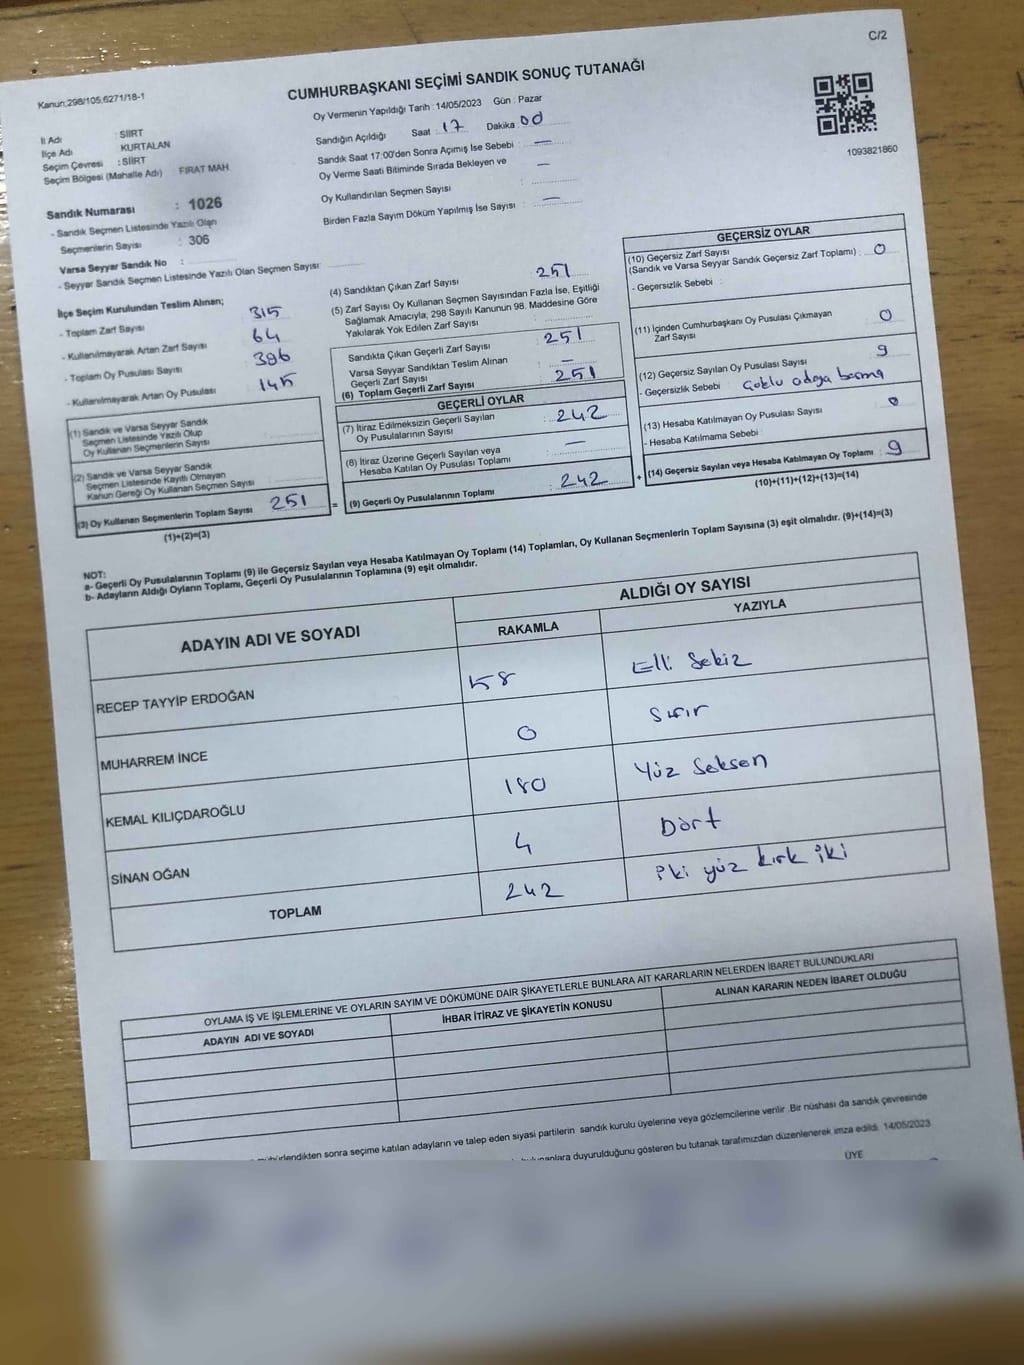 C/2
Kanun,298/105,6271/18-1
CUMHURBAŞKANI SEÇİMİ SANDIK SONUÇ TUTANAĞI
Oy Vermenin Yapıldığı Tarih : 14/05/2023 Gün : Pazar
İl Adı : SİİRT
İlçe Adı KURTALAN
Seçim Çevresi : SİİRT
Seçim Bölgesi (Mahalle Adı) FIRAT MAH
Sandık Numarası : 1026
- Sandık Seçmen Listesinde Yazılı Olan
Seçmenlerin Sayısı : 306
Varsa Seyyar Sandık No :
- Seyyar Sandık Seçmen Listesinde Yazılı Olan Seçmen Sayısı
Sandığın Açıldığı Saat : 17 Dakika : 00
Sandık Saat 17:00'den Sonra Açımış İse Sebebi : —
Oy Verme Saati Bitiminde Sırada Bekleyen ve —
Oy Kullandırılan Seçmen Sayısı :
Birden Fazla Sayım Döküm Yapılmış İse Sayısı : —
1093821860
İlçe Seçim Kurulundan Teslim Alınan;
- Toplam Zarf Sayısı 315
- Kullanılmayarak Artan Zarf Sayısı 64
- Toplam Oy Pusulası Sayısı 396
- Kullanılmayarak Artan Oy Pusulası 145
(1) Sandık ve Varsa Seyyar Sandık
Seçmen Listesinde Yazılı Olup
Oy Kullanan Seçmenlerin Sayısı :
(2) Sandık ve Varsa Seyyar Sandık
Seçmen Listesinde Kayıtlı Olmayan
Kanun Gereği Oy Kullanan Seçmen Sayısı :
(3) Oy Kullanan Seçmenlerin Toplam Sayısı 251
(1)+(2)=(3)
=
(4) Sandıktan Çıkan Zarf Sayısı 251
(5) Zarf Sayısı Oy Kullanan Seçmen Sayısından Fazla İse, Eşitliği
Sağlamak Amacıyla, 298 Sayılı Kanunun 98. Maddesine Göre
Yakılarak Yok Edilen Zarf Sayısı :
Sandıkta Çıkan Geçerli Zarf Sayısı : 251
Varsa Seyyar Sandıktan Teslim Alınan
Geçerli Zarf Sayısı : —
(6) Toplam Geçerli Zarf Sayısı : 251
GEÇERLİ OYLAR
(7) İtiraz Edilmeksizin Geçerli Sayılan
Oy Pusulalarının Sayısı : 242
(8) İtiraz Üzerine Geçerli Sayılan veya
Hesaba Katılan Oy Pusulası Toplamı : —
(9) Geçerli Oy Pusulalarının Toplamı : 242
+
GEÇERSİZ OYLAR
(10) Geçersiz Zarf Sayısı
(Sandık ve Varsa Seyyar Sandık Geçersiz Zarf Toplamı) : 0
- Geçersizlik Sebebi :
(11) İçinden Cumhurbaşkanı Oy Pusulası Çıkmayan
Zarf Sayısı : 0
(12) Geçersiz Sayılan Oy Pusulası Sayısı : 9
- Geçersizlik Sebebi : Çoklu adaya basma
(13) Hesaba Katılmayan Oy Pusulası Sayısı : 0
- Hesaba Katılmama Sebebi :
(14) Geçersiz Sayılan veya Hesaba Katılmayan Oy Toplamı : 9
(10)+(11)+(12)+(13)=(14)
NOT:
a- Geçerli Oy Pusulalarının Toplamı (9) ile Geçersiz Sayılan veya Hesaba Katılmayan Oy Toplamı (14) Toplamları, Oy Kullanan Seçmenlerin Toplam Sayısına (3) eşit olmalıdır. (9)+(14)=(3)
b- Adayların Aldığı Oyların Toplamı, Geçerli Oy Pusulalarının Toplamına (9) eşit olmalıdır.
ADAYIN ADI VE SOYADI
ALDIĞI OY SAYISI
RAKAMLA YAZIYLA
RECEP TAYYİP ERDOĞAN 58 Elli Sekiz
MUHARREM İNCE 0 Sıfır
KEMAL KILIÇDAROĞLU 180 Yüz Seksen
SİNAN OĞAN 4 Dört
TOPLAM 242 iki yüz kırk iki
OYLAMA İŞ VE İŞLEMLERİNE VE OYLARIN SAYIM VE DÖKÜMÜNE DAİR ŞİKAYETLERLE BUNLARA AİT KARARLARIN NELERDEN İBARET BULUNDUKLARI
ADAYIN ADI VE SOYADI İHBAR İTİRAZ VE ŞİKAYETİN KONUSU ALINAN KARARIN NEDEN İBARET OLDUĞU
sonra seçime katılan adayların ve talep eden siyasi partilerin sandık kurulu üyelerine veya gözlemcilerine verilir .Bir nüshası da sandık çevresinde
duyurulduğunu gösteren bu tutanak tarafımızdan düzenlenerek imza edildi. 14/05/2023
ÜYE